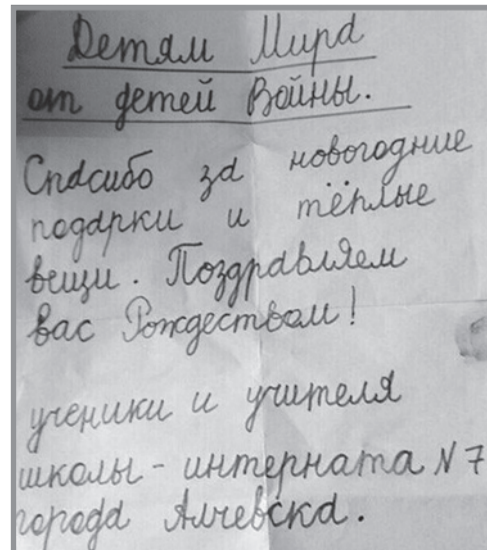 Детям Мира
от детей Войны.
Спасибо за новогодние
подарки и тёплые
вещи. Поздравляем
вас Рождеством!
ученики и учителя
школы - интерната N 7
города Алчевска.